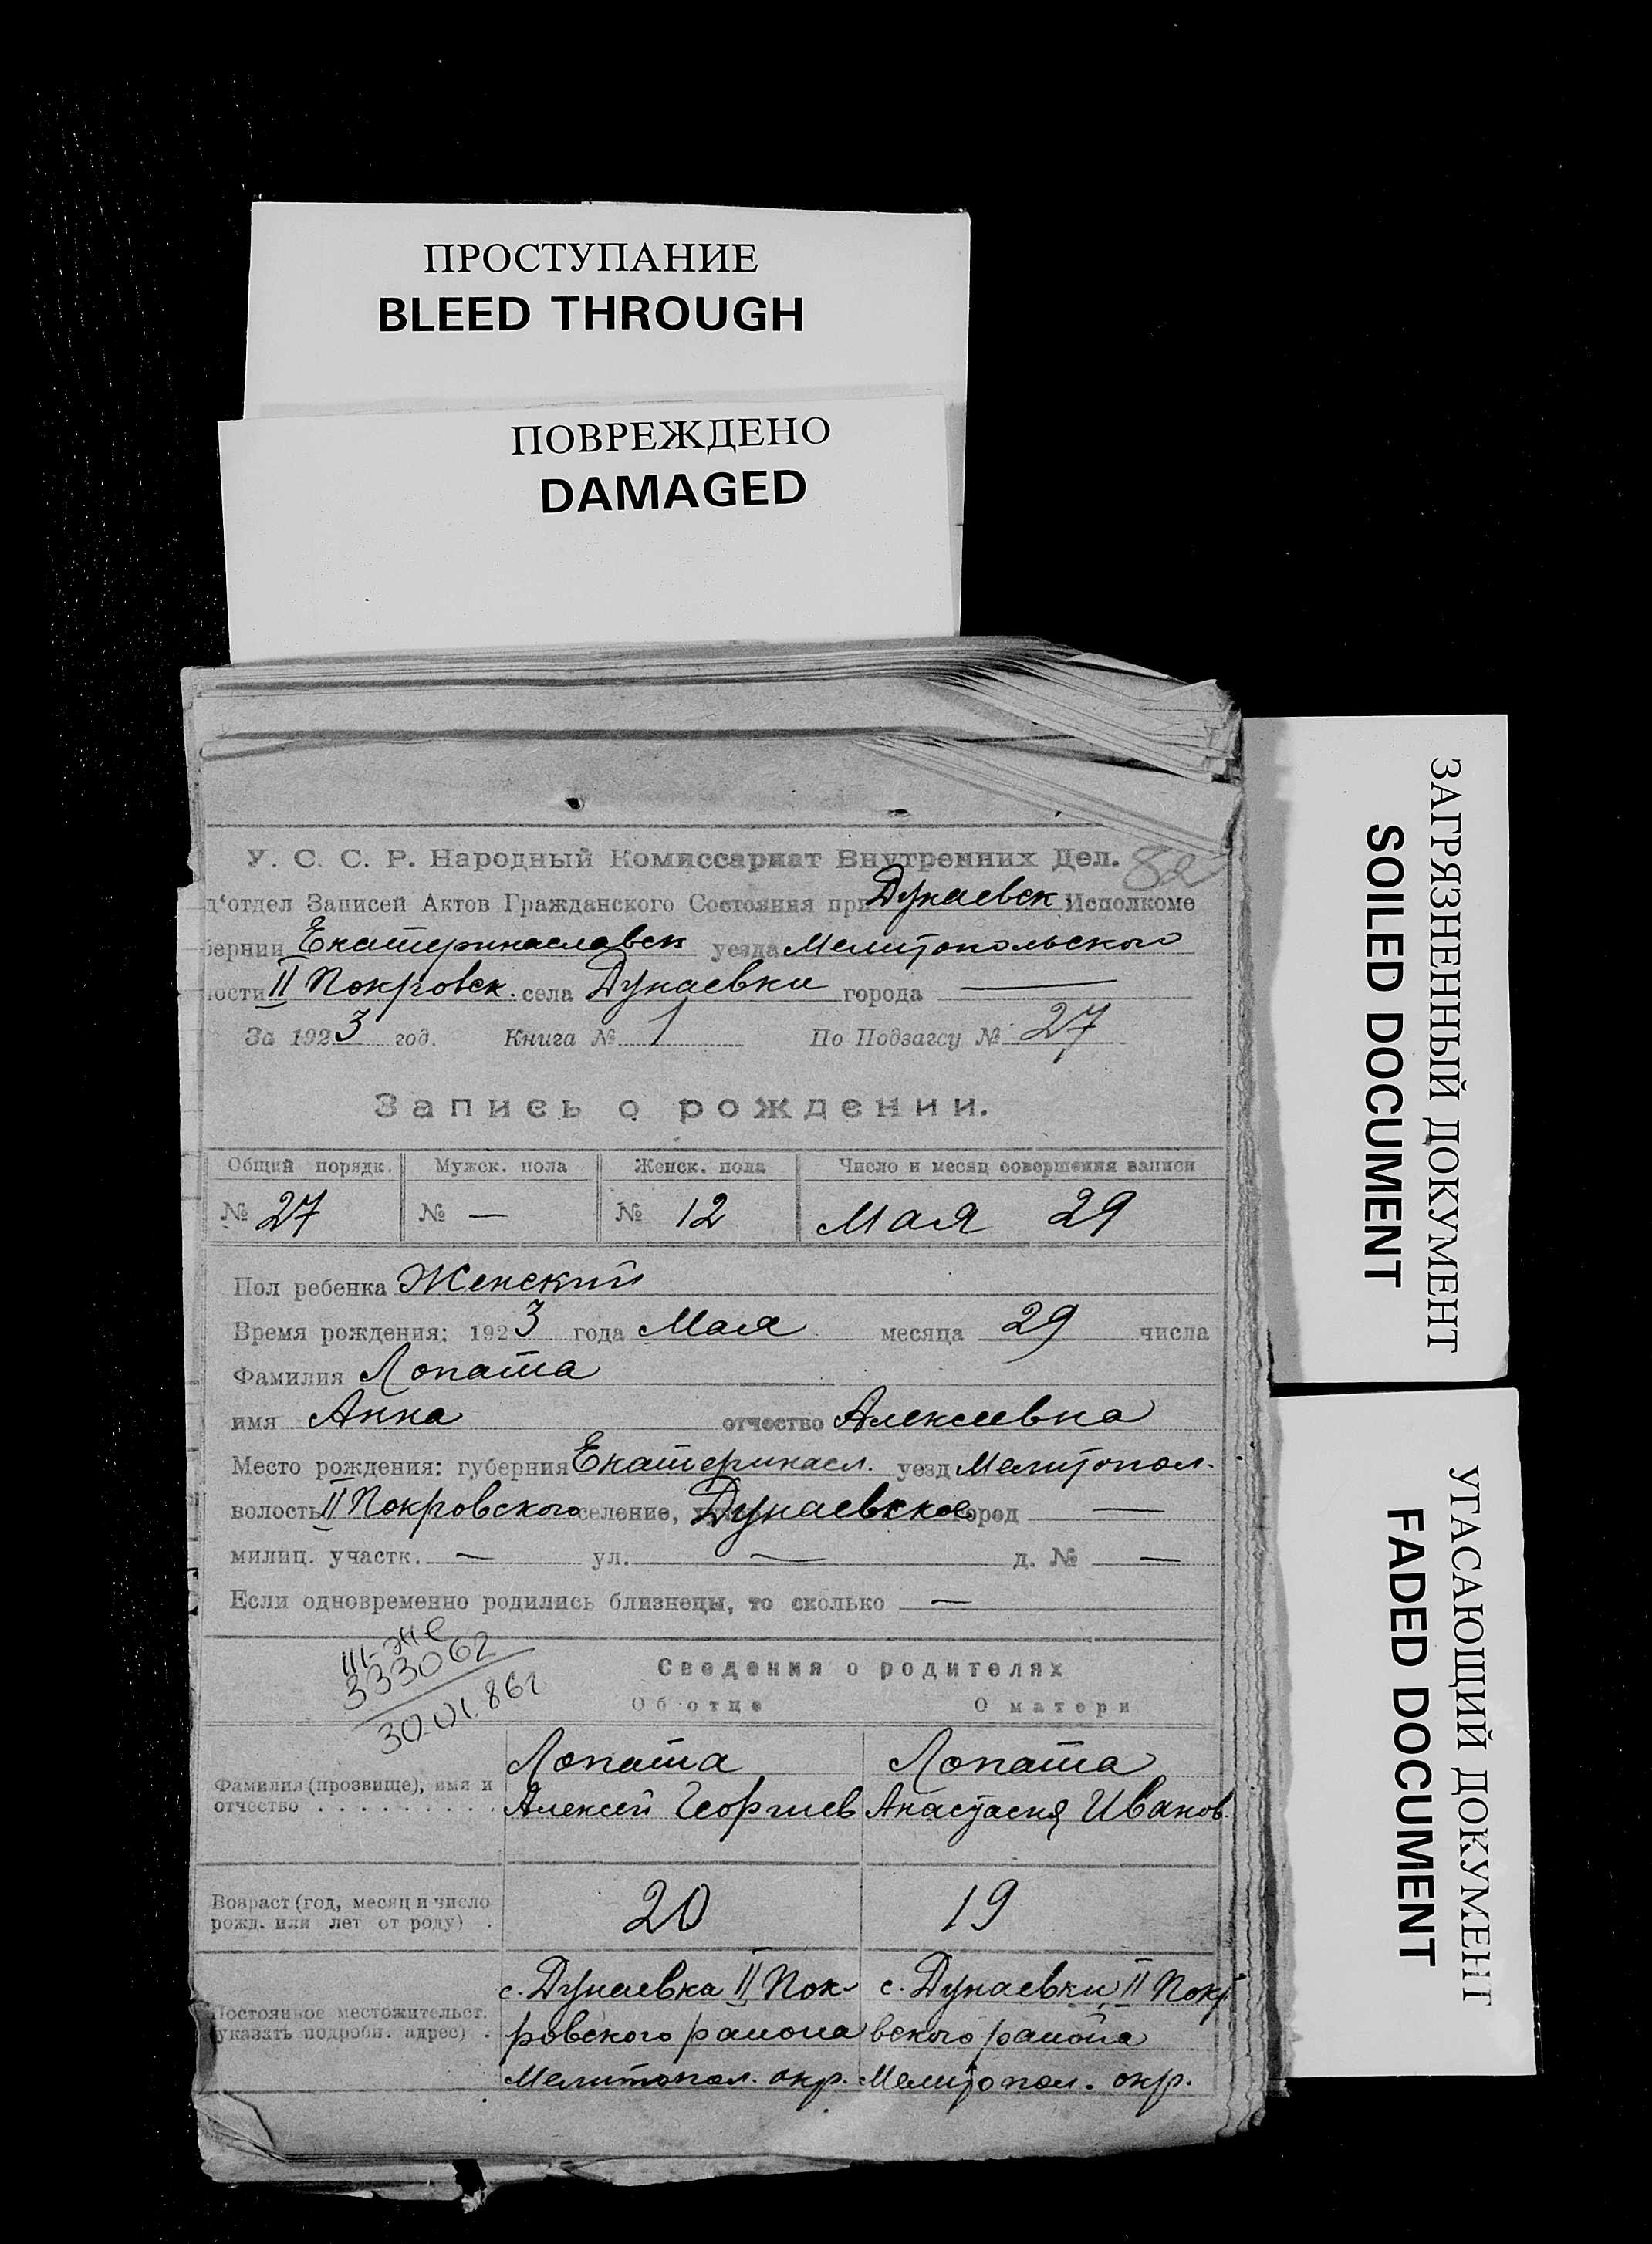 ПРОСТУПАНИЕ
BLEED THROUGH
ПОВРЕЖДЕНО
DAMAGED
ЗАГРЯЗНЕННЫЙ ДОКУМЕНТ
SOILED DOCUMENT
УГАСАЮЩИЙ ДОКУМЕНТ
FADED DOCUMENT
У. С. С. Р. Народный Комиссариат Внутренних Дел. 82
д'отдел Записей Актов Гражданского Состояния при Дунаевск Исполкоме
бернии Екатеринаславск уезда Мелитопольского
ности II Покровск. села Дунаевки города —
За 1923 год. Книга № 1 По Подзагсу № 27
Запись о рождении.
Общий порядк. Мужск. пола Женск. пола Число и месяц совершения записи
№ 27 № — № 12 Мая 29
Пол ребенка Женский
Время рождения: 1923 года Мая месяца 29 числа
Фамилия Лопата
имя Анна отчество Алексеевна
Место рождения: губерния Екатеринасл. уезд Мелитопол.
волость II Покровского селение, Дунаевское город —
милиц. участк. — ул. — д. № —
Если одновременно родились близнецы, то сколько —
III-ЖС
333062
30.01.86г
Сведения о родителях
Об отце О матери
Фамилия (прозвище), имя и отчество Лопата Лопата
Алексей Георгиев Анастасия Иванов.
Возраст (год, месяц и число рожд. или лет от роду) 20 19
Постоянное местожительст. указать подробн. адрес) с. Дунаевка II Пок- с. Дунаевки II Покр
ровского района вского района
Мелитопол. окр. Мелитопол. окр.